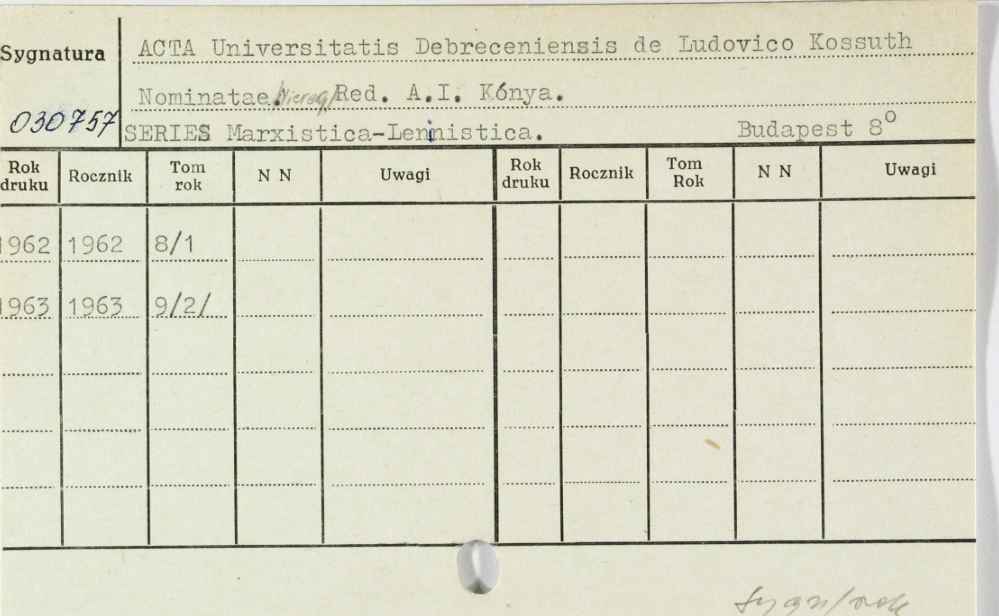 Sygnatura
ACTA Universitatis Debreceniensis de Ludovico Kossuth
Nominatae. Red. A.I. Kónya.
030757
SERIES Marxistica-Leninistica. Budapest 8°
Rok druku Rocznik Tom rok N N Uwagi Rok druku Rocznik Tom Rok N N Uwagi
1962 1962 8/1
1963 1963 9/2/